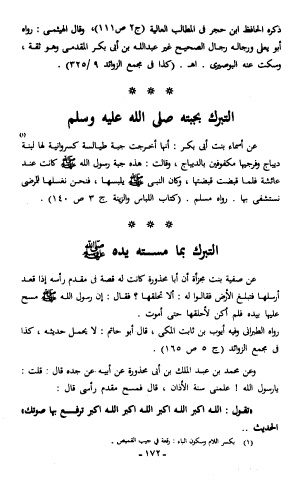 ذكره الحافظ ابن حجر في المطالب العالية (ج٢ ص١١١)، وقال الهيثمي : رواه
أبو يعلى ورجاله رجال الصحيح غير عبدالله بن أبي بكر المقدمي وهو ثقة ،
وسكت عنه البوصيري . اهـ . (كذا في مجمع الزوائد ٩/ ٣٢٥)
* * *
التبرك بجبته صلى الله عليه وسلم
عن أسماء بنت أبي بكر : أنها أخرجت جبة طيالسة كسروانية لها لبنة (١)
ديباج وفرجيها مكفوفين بالديباج ، وقالت : هذه جبة رسول الله ﷺ كانت عند
عائشة فلما قبضت قبضتها ، وكان النبي ﷺ يلبسها ، فنحن نغسلها للمرضى
نستشفى بها . رواه مسلم . (كتاب اللباس والزينة . ج ٣ ص ١٤٠) .
* * *
التبرك بما مسته يده ﷺ
عن صفية بنت مجزأة أن أبا محذورة كانت له قصة في مقدم رأسه إذا قعد
أرسلها فتبلغ الأرض فقالوا له : ألا تحلقها ؟ فقال : إن رسول الله ﷺ مسح
عليها بيده فلم أكن لأحلقها حتى أموت .
رواه الطبراني وفيه أيوب بن ثابت المكي ، قال أبو حاتم : لا يحمل حديثه ، كذا
في مجمع الزوائد (ج ٥ ص ١٦٥) .
وعن محمد بن عبد الملك بن أبي محذورة عن أبيه عن جده قال : قلت :
يارسول الله ! علمني سنة الأذان ، قال : فمسح مقدم رأسي قال :
«تقول : الله اكبر الله اكبر الله اكبر الله اكبر ترفع بها صوتك»
الحديث ..
(١) بكسر اللام وسكون الباء : رقعة في جيب القميص .
- ١٧٢ -